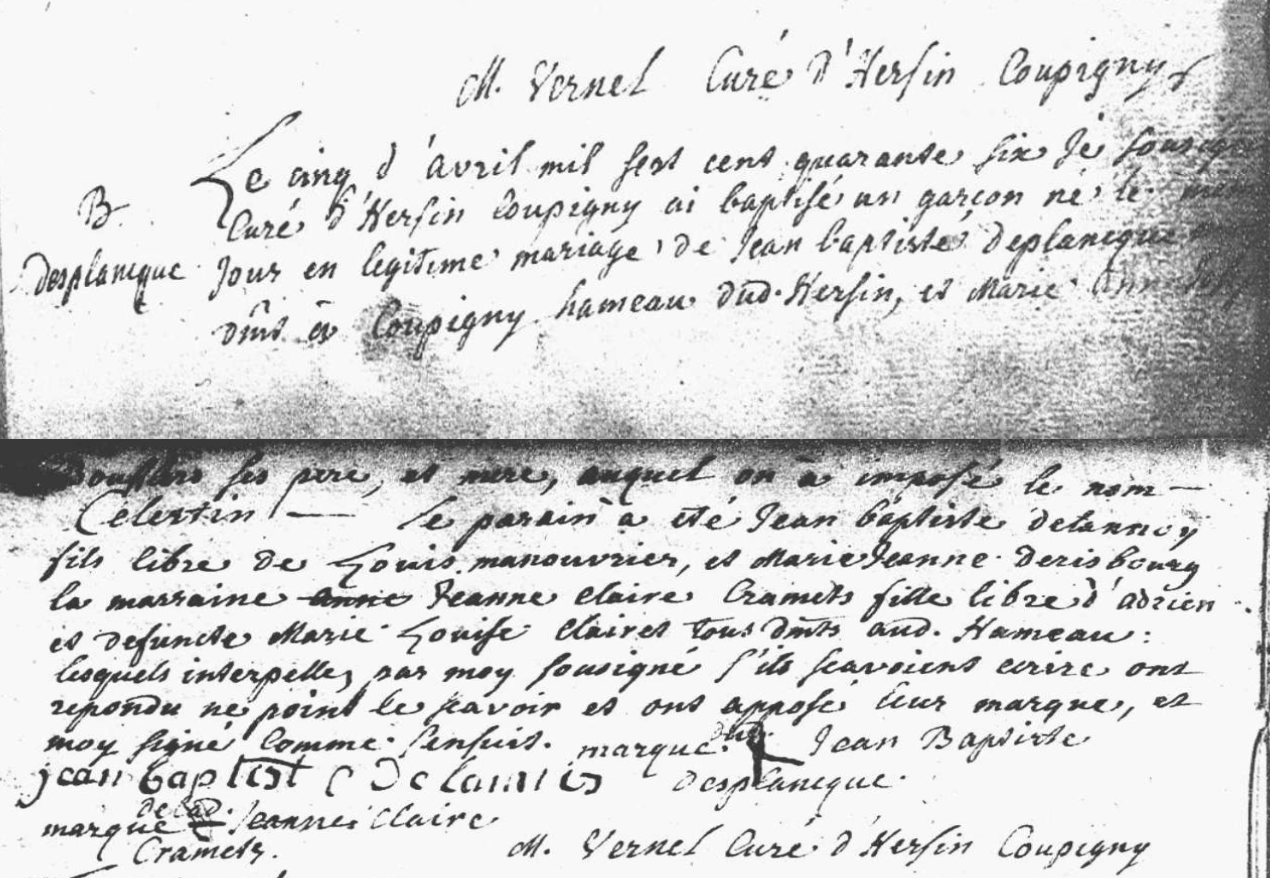 M. Vernel Curé d'Hersin Coupigny
Le cinq d'avril mil sept cent quarante six Je sousigné
B
Curé d'Hersin Coupigny ai baptisé un garçon né le meme
Desplancque
Jour en legitime mariage de Jean baptiste Deplancque
dmt a Coupigny hameau dud. Hersin, et Marie Ann
ses pere, et mere, auquel on a imposé le nom —
Celestin — Le parain a été Jean baptiste delannoy
fils libre de Louis manouvrier, et Marie Jeanne Derisbourg
la marraine anne Jeanne Claire Cramets fille libre d'adrien
et defuncte Marie Louise Clairet tous dmts aud. Hameau:
lesquels interpellez par moy sousigné s'ils scavoient ecrire ont
repondu ne point le scavoir et ont apposé leur marque, et
moy signé comme s'ensuit. marque dud. Jean Baptiste
Desplancque
jean baptiste
marque de lad. Jeanne Claire
Cramets.
M. Vernel Curé d'Hersin Coupigny